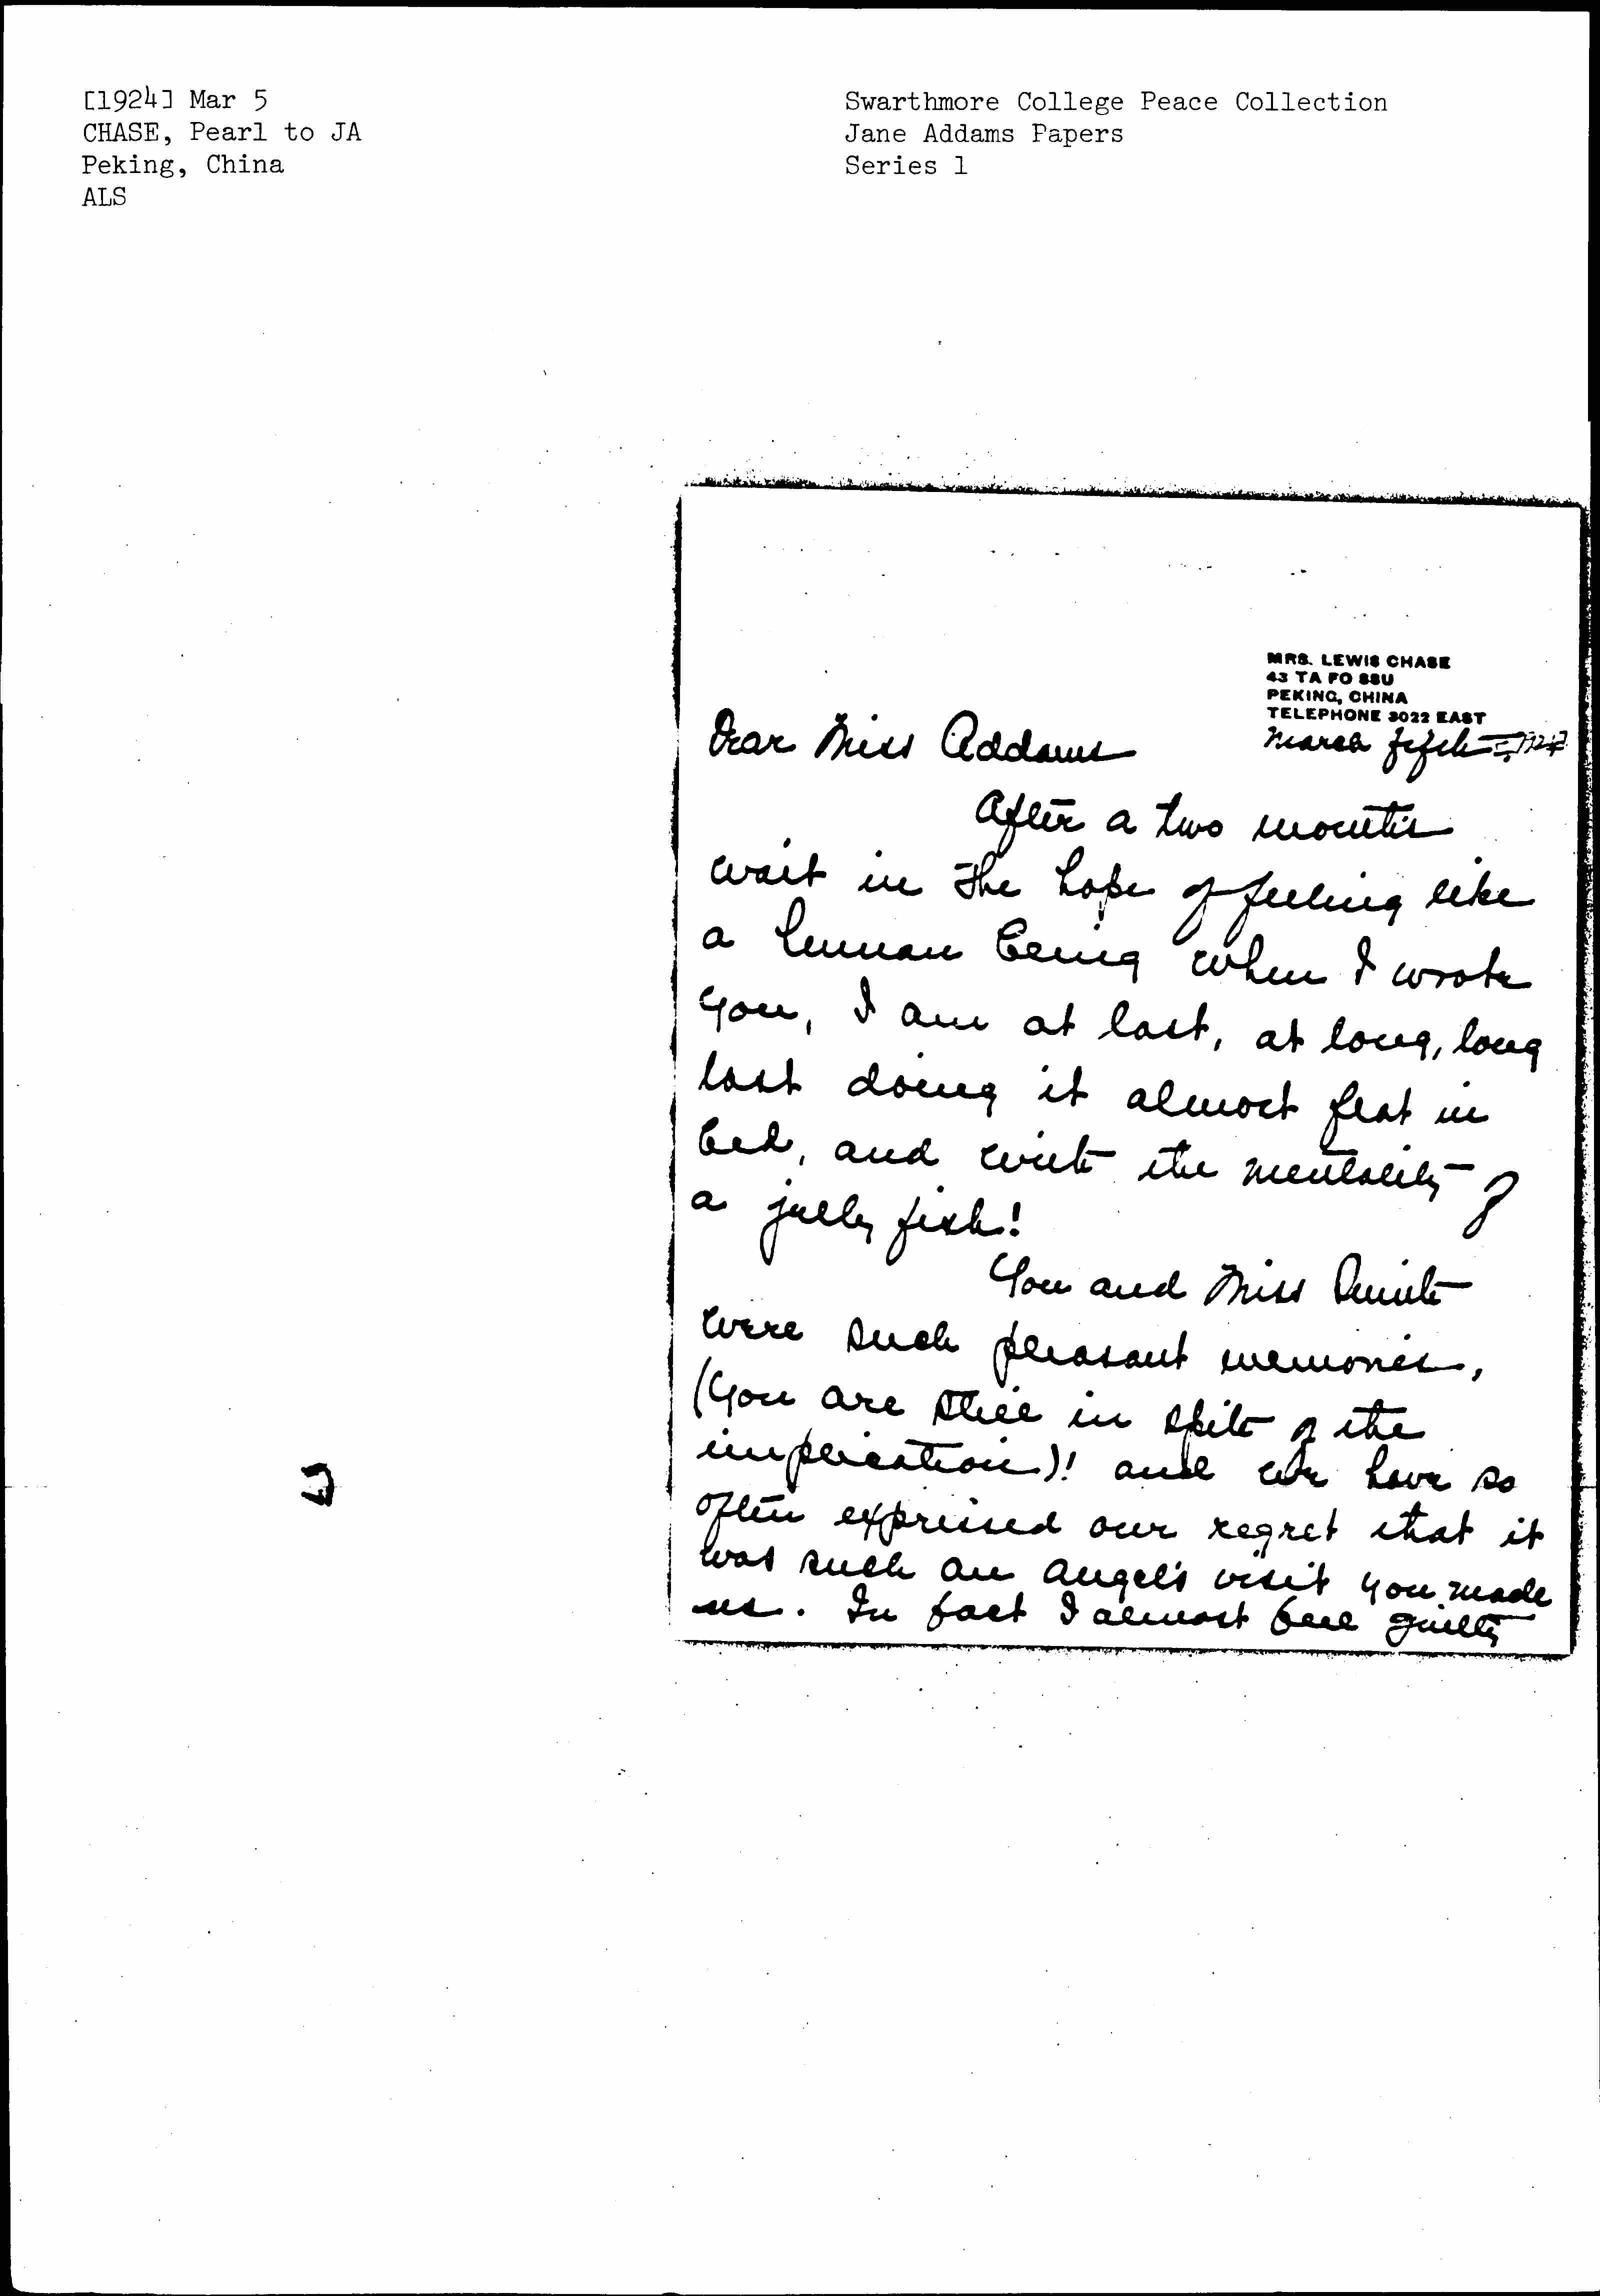 [1924] Mar 5
CHASE, Pearl to JA
Peking, China
ALS
Swarthmore College Peace Collection
Jane Addams Papers
Series 1
MRS. LEWIS CHASE
43 TA FO SSU
PEKING, CHINA
TELEPHONE 3022 EAST
March fifth - 1924
Dear Miss Addams
After a two months
wait in the hope of feeling like
a human being when I wrote
you, I am at last, at long, long
last doing it almost flat in
bed, and with the mentality of
a jelly fish!
You and Miss Smith
were such pleasant memories,
(you are still in spite of the
implication)! and we have so
often expressed our regret that it
was such an angel's visit you made
us. In fact I almost feel guilty